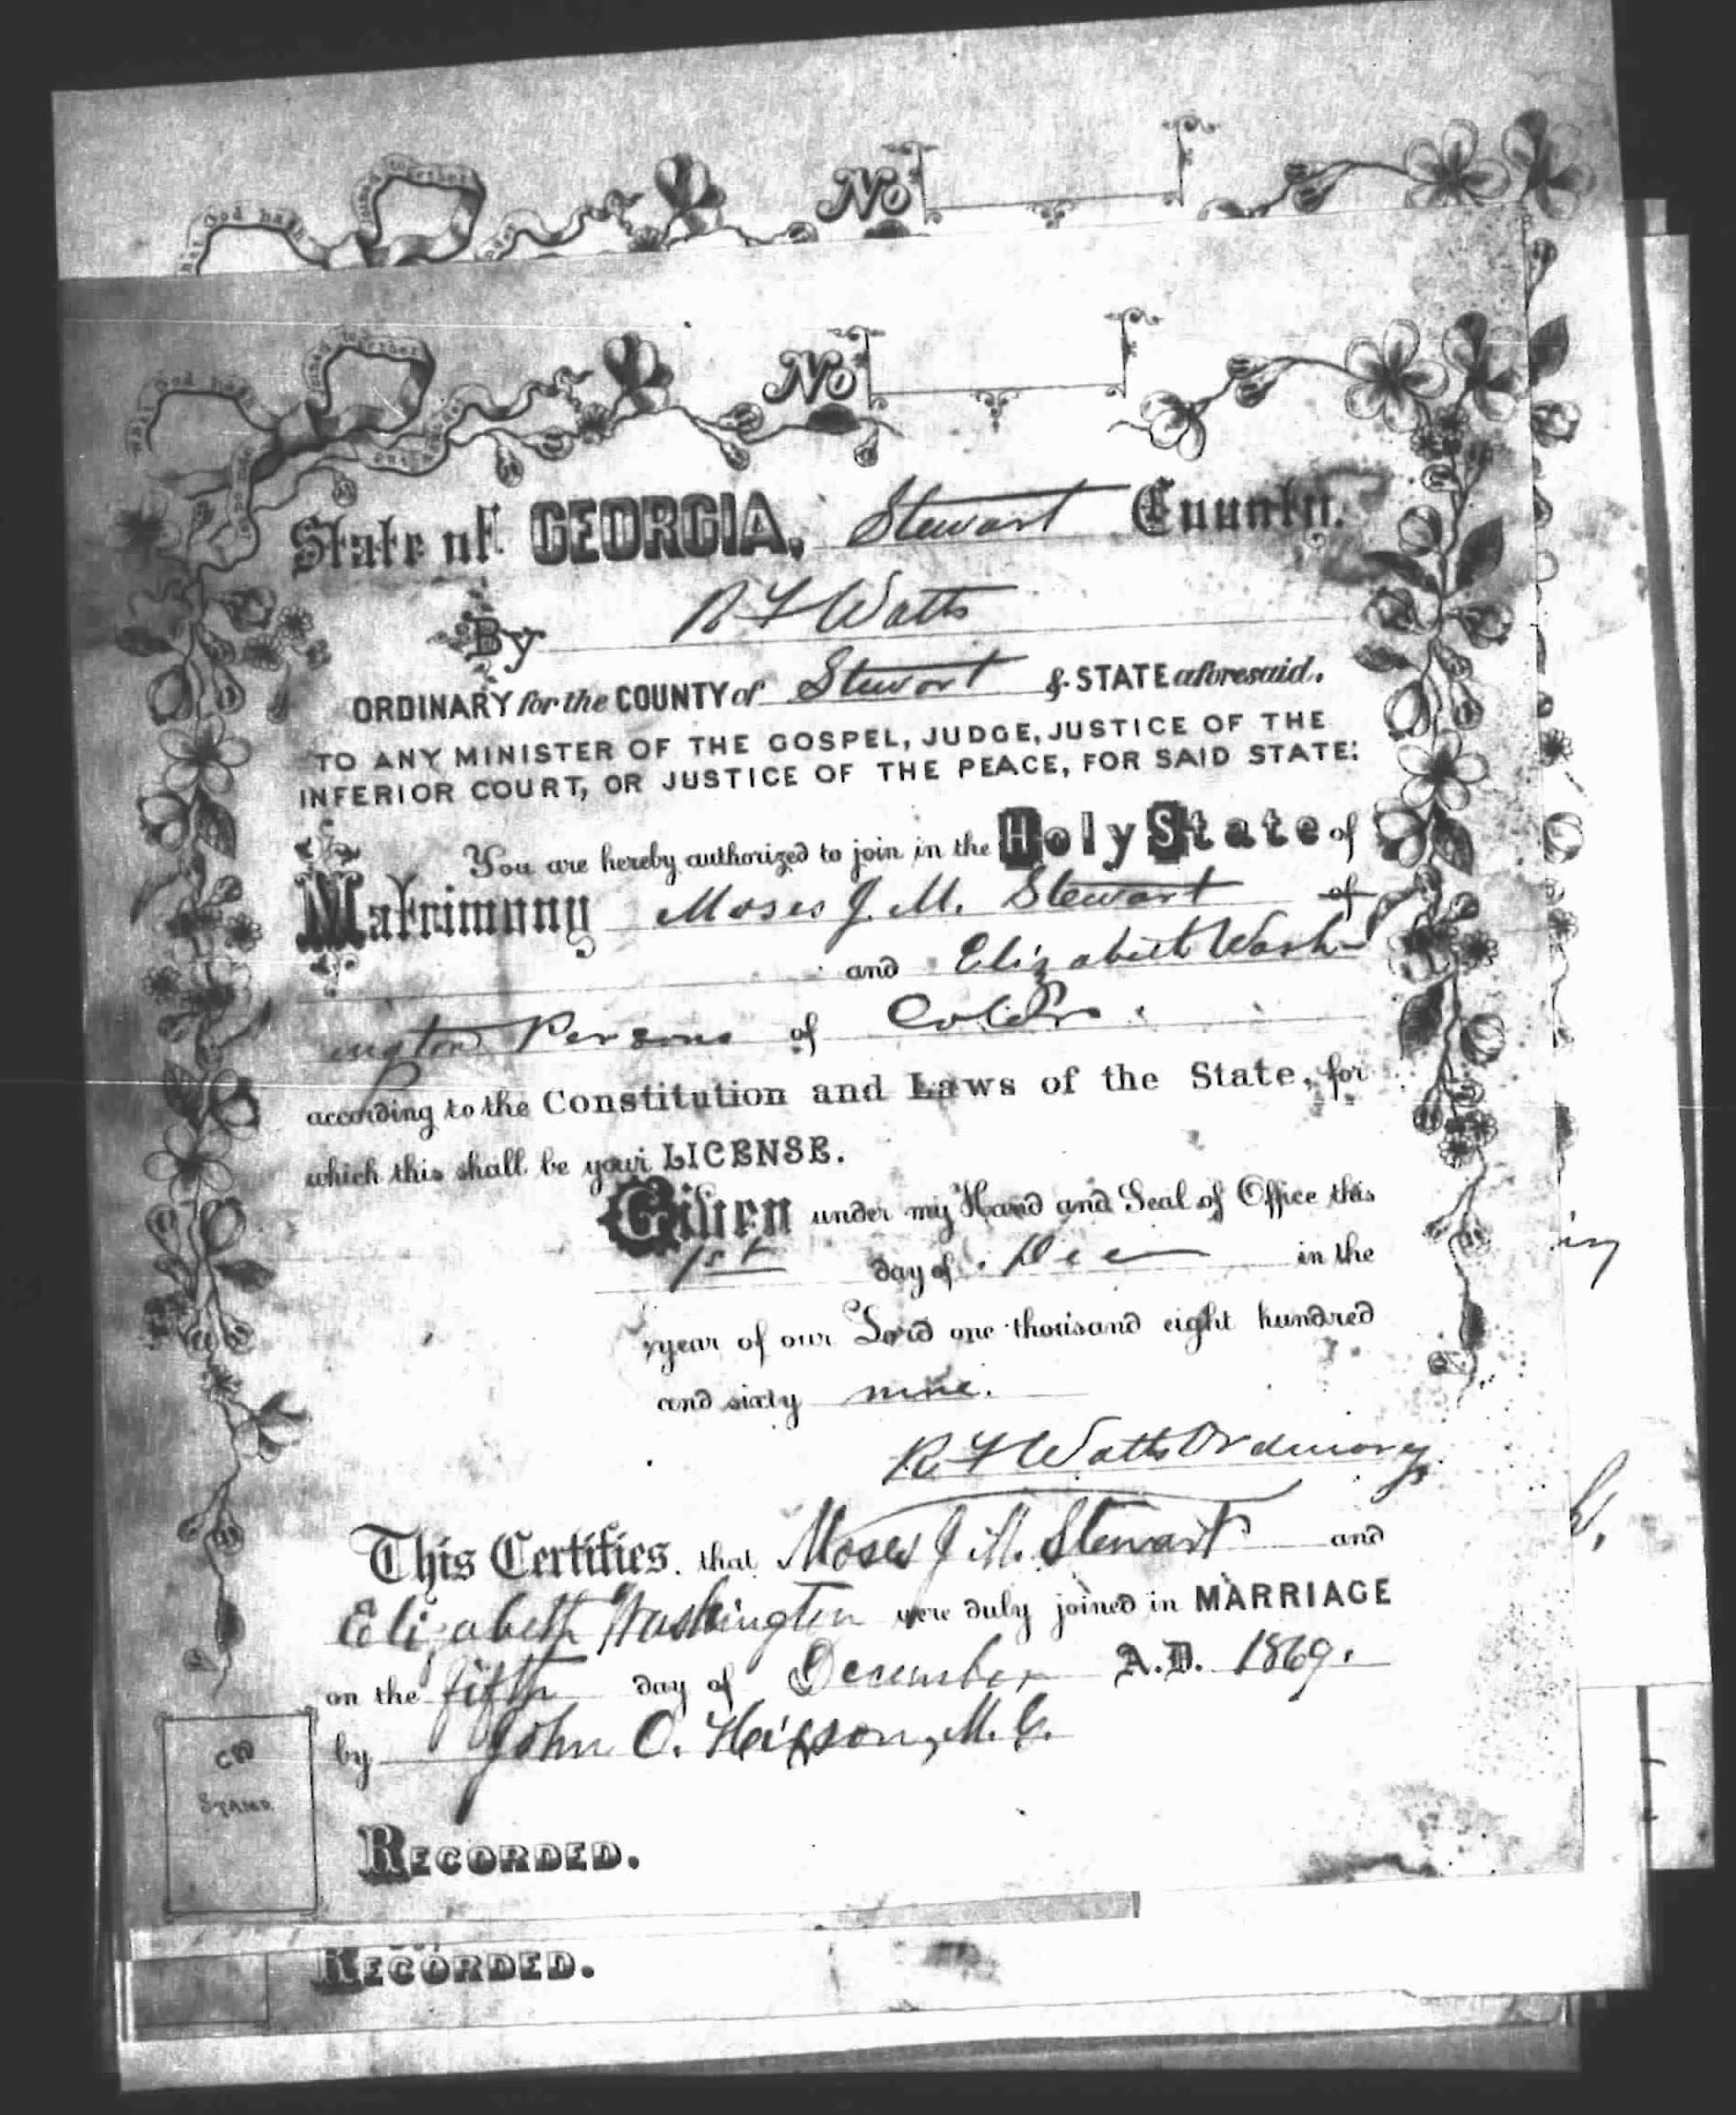 What God hath
joined together
No
What God hath
joined together
No
State of GEORGIA, Stewart County.
By R F Watts
ORDINARY for the COUNTY of Stewart & STATE aforesaid.
TO ANY MINISTER OF THE GOSPEL, JUDGE, JUSTICE OF THE
INFERIOR COURT, OR JUSTICE OF THE PEACE, FOR SAID STATE:
You are hereby authorized to join in the Holy State of
Matrimony Moses J. M. Stewart of
and Elizabeth Wash-
ington Persons of
according to the Constitution and Laws of the State, for
which this shall be your LICENSE.
Given under my Hand and Seal of Office this
1st day of Dec in the
year of our Lord one thousand eight hundred
and sixty nine.
R F Watts Ordinary
This Certifies, that Moses J. M. Stewart and
Elizabeth Washington were duly joined in MARRIAGE
on the fifth day of December A.D. 1869.
by John O.
STAMP.
RECORDED.
RECORDED.